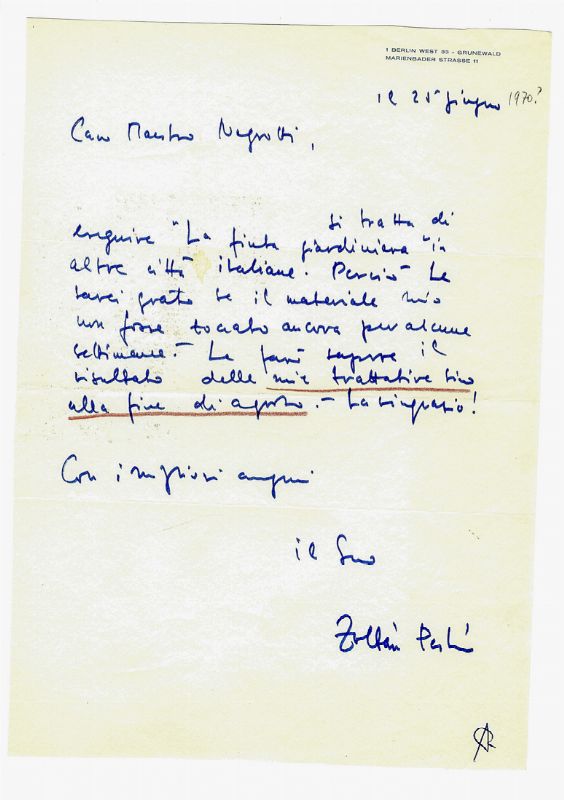 1 BERLIN WEST 33 - GRUNEWALD
MARIENBADER STRASSE 11
il 25 giugno 1970?
Caro Maestro Negrotti,
si tratta di
eseguire "La finta giardiniera" in
altre città italiane. Perciò Le
sarei grato se il materiale mio
non fosse toccato ancora per alcune
settimane. - Le farò sapere il
risultato delle mie trattative sino
alla fine di agosto. - La ringrazio!
Con i migliori auguri
il Suo
Zoltán